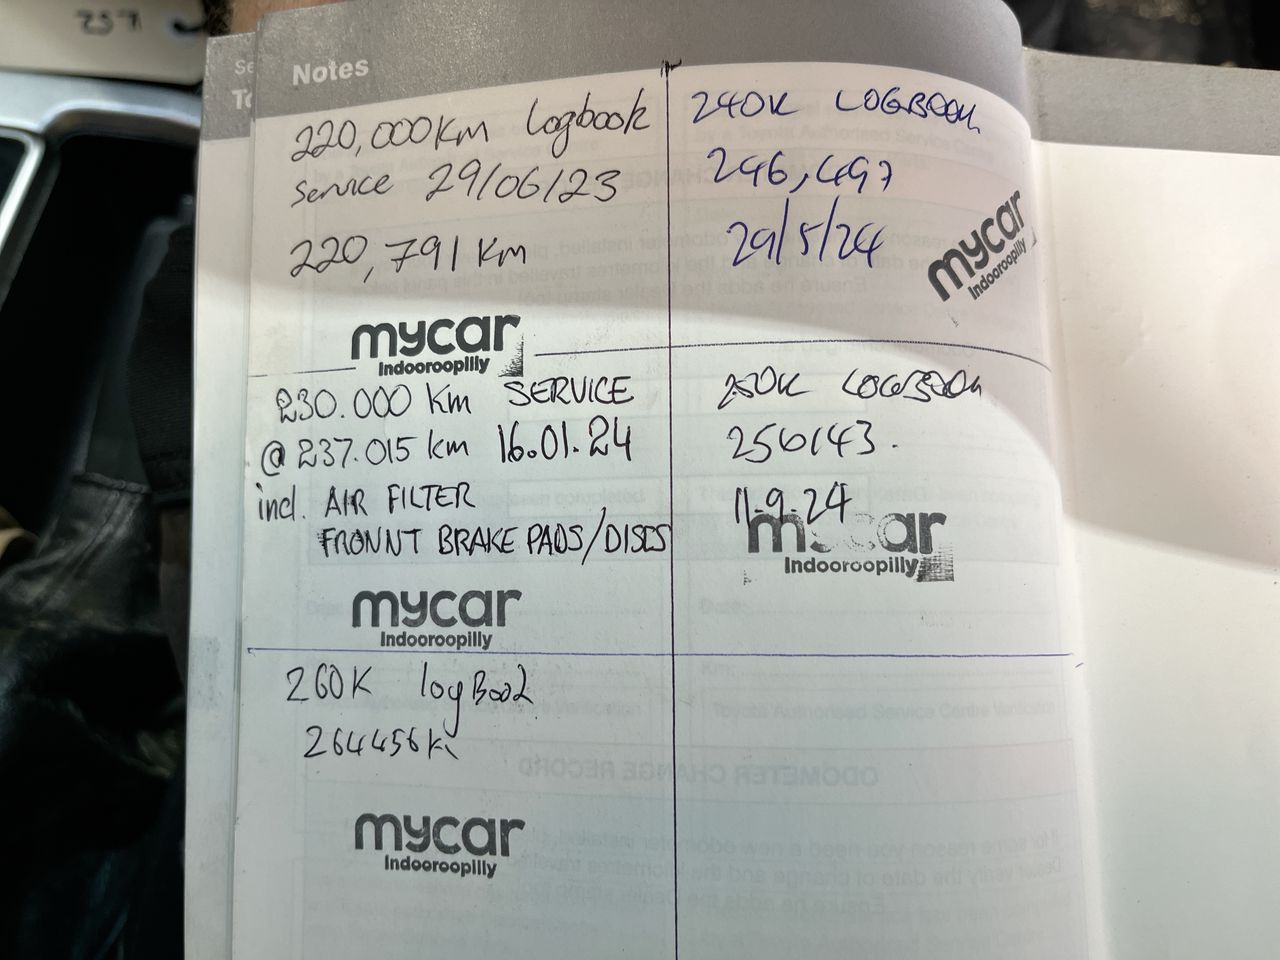 257
Se
To
Notes
220,000km Logbook
service 29/06/23
220,791 Km
mycar
Indooroopilly
230.000 Km SERVICE
@ 237.015 km 16.01.24
incl. AIR FILTER
FRONNT BRAKE PADS/DISCS
mycar
Indooroopilly
260K logBook
264456K
mycar
Indooroopilly
240K LOGBOOK
246,497
29/5/24
mycar
Indooroopilly
250K LOGBOOK
256143.
11.9.24
mycar
Indooroopilly
ODOMETER CHANGE RECORD